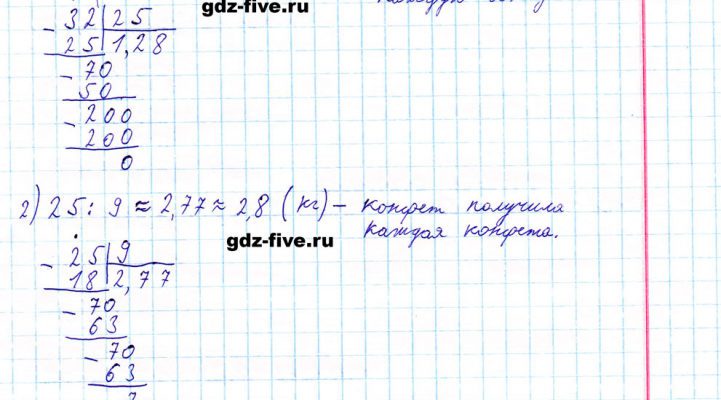 gdz-five.ru
- 32 | 25
25 | 1,28
- 70
50
- 200
200
0
2) 25 : 9 ≈ 2,77 ≈ 2,8 (кг) – конфет получила
каждая конфета.
gdz-five.ru
- 25 | 9
18 | 2,77
- 70
63
- 70
63
7